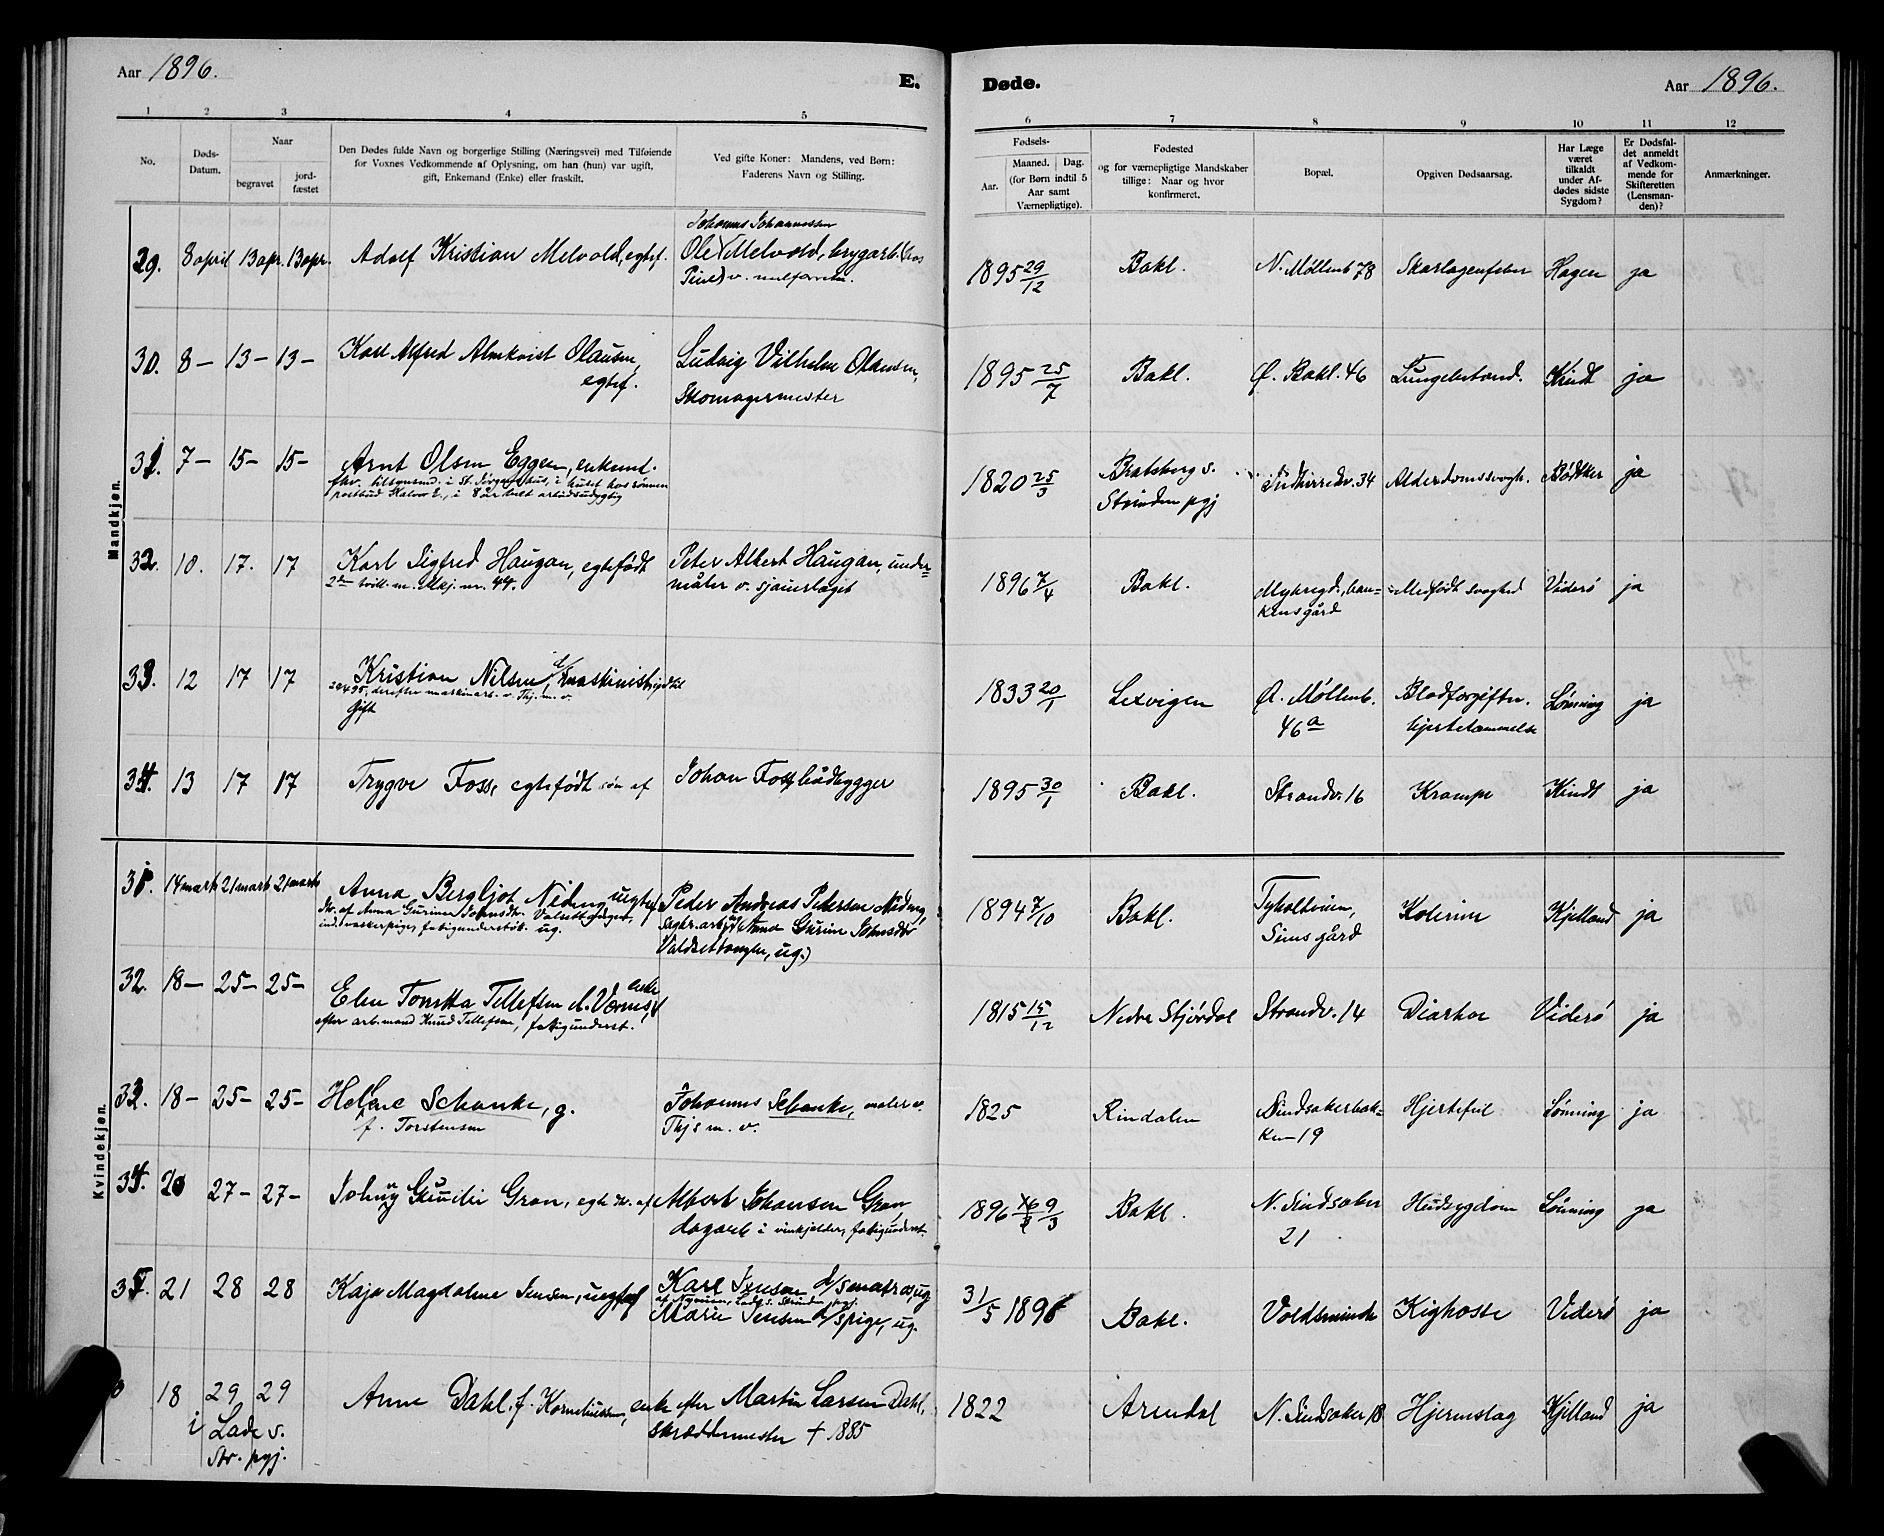 Aar 1896.
E.
Døde.
Aar 1896.
1 2 3 4 5
6 7 8 9 10 11 12
No.
Døds-
Datum.
Naar
begravet
jord-
fæstet
Den Dødes fulde Navn og borgerlige Stilling (Næringsvei) med Tilføiende
for Voxnes Vedkommende af Oplysning, om han (hun) var ugift,
gift, Enkemand (Enke) eller fraskilt.
Ved gifte Koner: Mandens, ved Børn:
Faderens Navn og Stilling.
Fødsels-
Aar.
Maaned. Dag.
(for Børn indtil 5
Aar samt
Værnepligtige).
Fødested
og for værnepligtige Mandskaber
tillige: Naar og hvor
konfirmeret.
Bopæl.
Opgiven Dødsaarsag.
Har Læge
været
tilkaldt
under Af-
dødes sidste
Sygdom?
Er Dødsfal-
det anmeldt
af Vedkom-
mende for
Skifteretten
(Lensman-
den)?
Anmærkninger.
Mandkjøn.
Johannes Johannessen
29. 8 april 13 apr. 13 apr. Adolf Kristian Melvold, egtef. Ole Melvold, brygarb. (hos
v.
1895 29/12 Bakl. N. Møllenb 78 Skarlagenfeber Hagen ja
30. 8 – 13 – 13 – Karl Alfred Almkvist Olausen, Ludvig Vilhelm Olausen,
egtef. Skomagermester
1895 25/7 Bakl. Ø. Bakl. 46 Lungebetænd. Kindt ja
31. 7 – 15 – 15 – Arnt Olsen Eggen, enkemd.
fhv. i St. Jørgens hus, i huset hos sønnen
postbud i 8 år helt arbeidsudygtig
1820 25/3 Bratsberg s. 34 Alderdomssvagh. Bødtker ja
Strinden pgj
32. 10. 17. 17 Karl Sigfred Haugan, egtefødt Peter Albert Haugan, under-
2den tvill. m. nr. 44. måler v. sjauerlaget
1896 7/4 Bakl. Medfødt svaghed Viderø ja
gård
33. 12 17 17 Kristian Nilsen, f/ maskinist
derefter maskinarb. v. Thj. m. v.
gift
1833 20/1 Lexvigen Ø. Møllenb. Blodforgiftn. Lønning ja
46a hjertelammelse
34. 13 17 17 Trygve Foss, egtefødt søn af Johan Foss, bådbygger
1895 30/1 Bakl. Strandv. 16 Krampe Kindt ja
Kvindekjøn.
31. 14 marts 21 marts 21 marts Anna Bergljot Nideng uegtef. Peder Andreas Petersen Nideng,
dtr. af Anna Gurine Johnsdtr. og Anna Gurine Johnsdtr
ug. ug.)
1894 7/10 Bakl. Tyholtveien, Kolerine Kjelland ja
Sims gård
32. 18 – 25 – 25 – Elen Tomtta Tellefsen enke
efter arb.mand Knud Tellefsen, fattigunderst.
1815 15/12 Nedre Stjørdal Strandv. 14 Diarhoe Viderø ja
33. 18 – 25 – 25 – Helene Schanke, g. Johannes Schanke, maler v.
f. Torstensen Thjs m. v.
1825 Rindalen Sindsakerbak- Hjertefeil Lønning ja
ken 19
34. 20 27 – 27 – Johny Gran, egte dtr. af Albert Johansen Gran,
dagarb. i vinkjelder, fattigunderst.
1896 9/3 Bakl. N. Sindsaker Hudsygdom Lønning ja
21
35. 21 28 28 Kaja Magdalene Jensen, uegtef Karl Jensen d/s matros, ug
Lade s. Strinden pgj.
Marie Jensen d/s pige, ug.
31/5 1896 Bakl. Voldsminde Kighoste Viderø ja
18 29 29 Anne Dahl f. Korneliussen, enke efter Martin Larsen Dahl,
i Lade s. skræddermester † 1885
Str. pgj.
1822 Arendal N. Sindsaker 18 Hjerneslag Kjelland ja